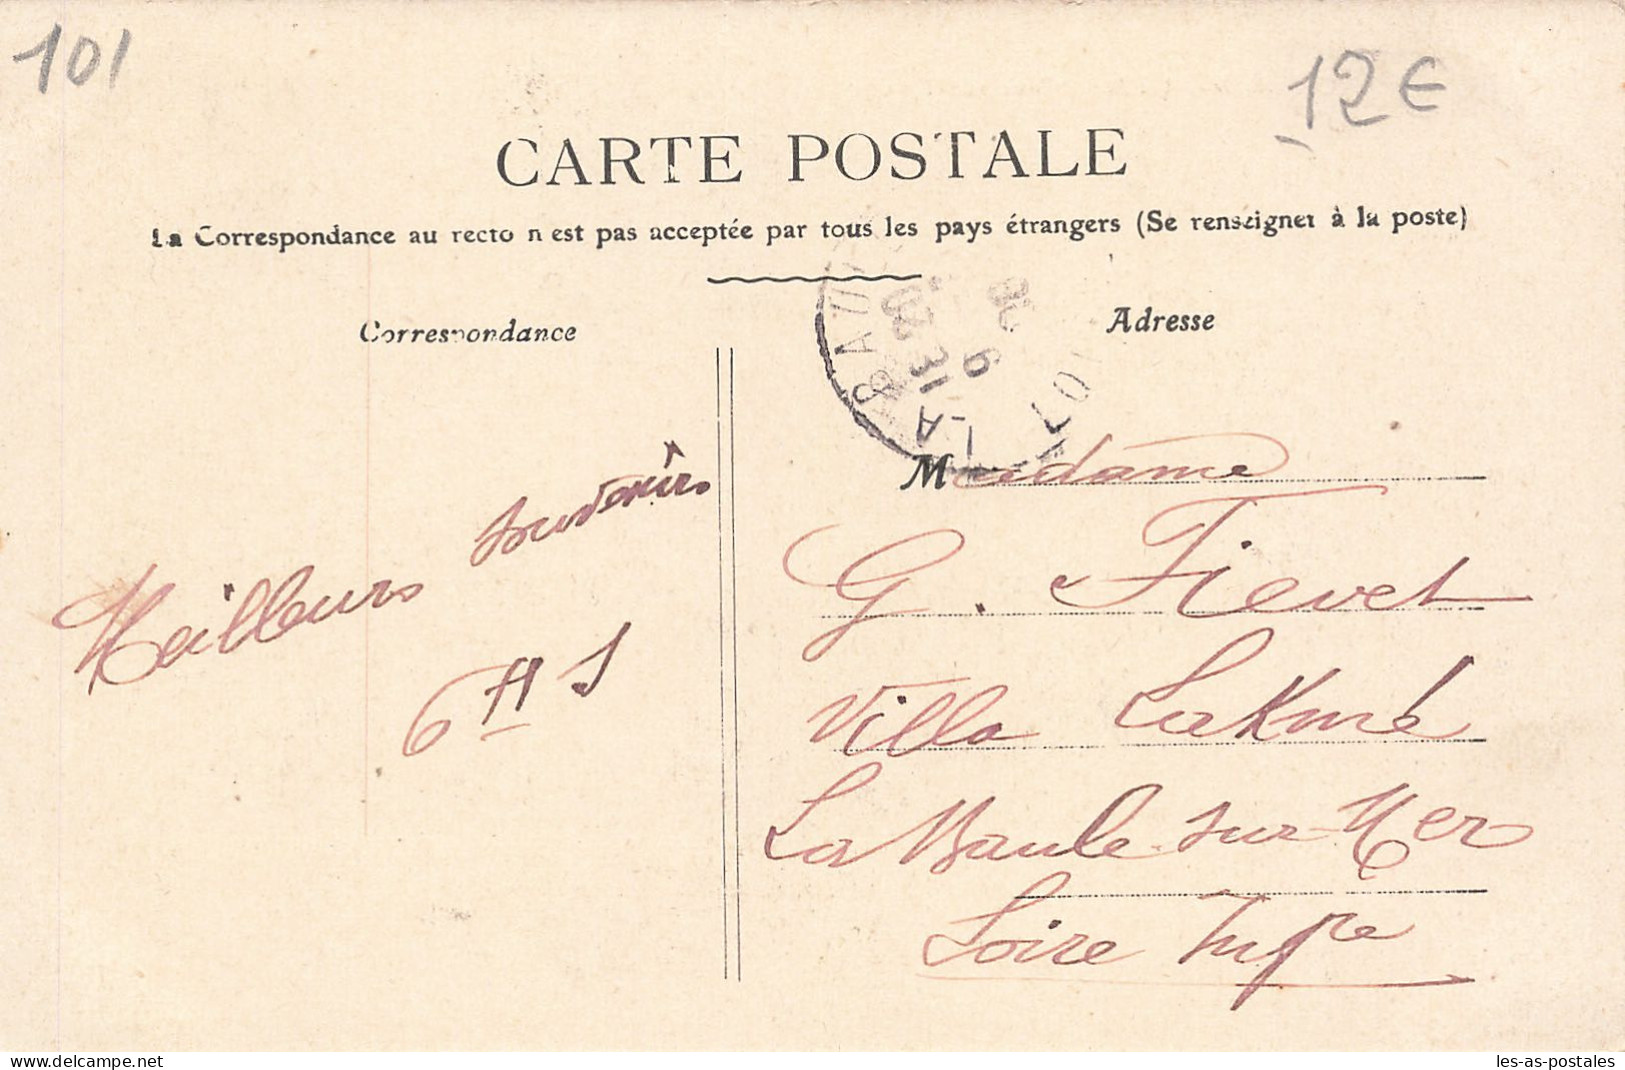 101
12€
CARTE POSTALE
La Correspondance au recto n'est pas acceptée par tous les pays étrangers (Se renseigner à la poste)
Correspondance
Adresse
Meilleurs souvenirs
Madame
G. Fievet
Villa Lakmé
La Baule-sur-Mer
Loire Infre
delcampe.net
les-as-postales